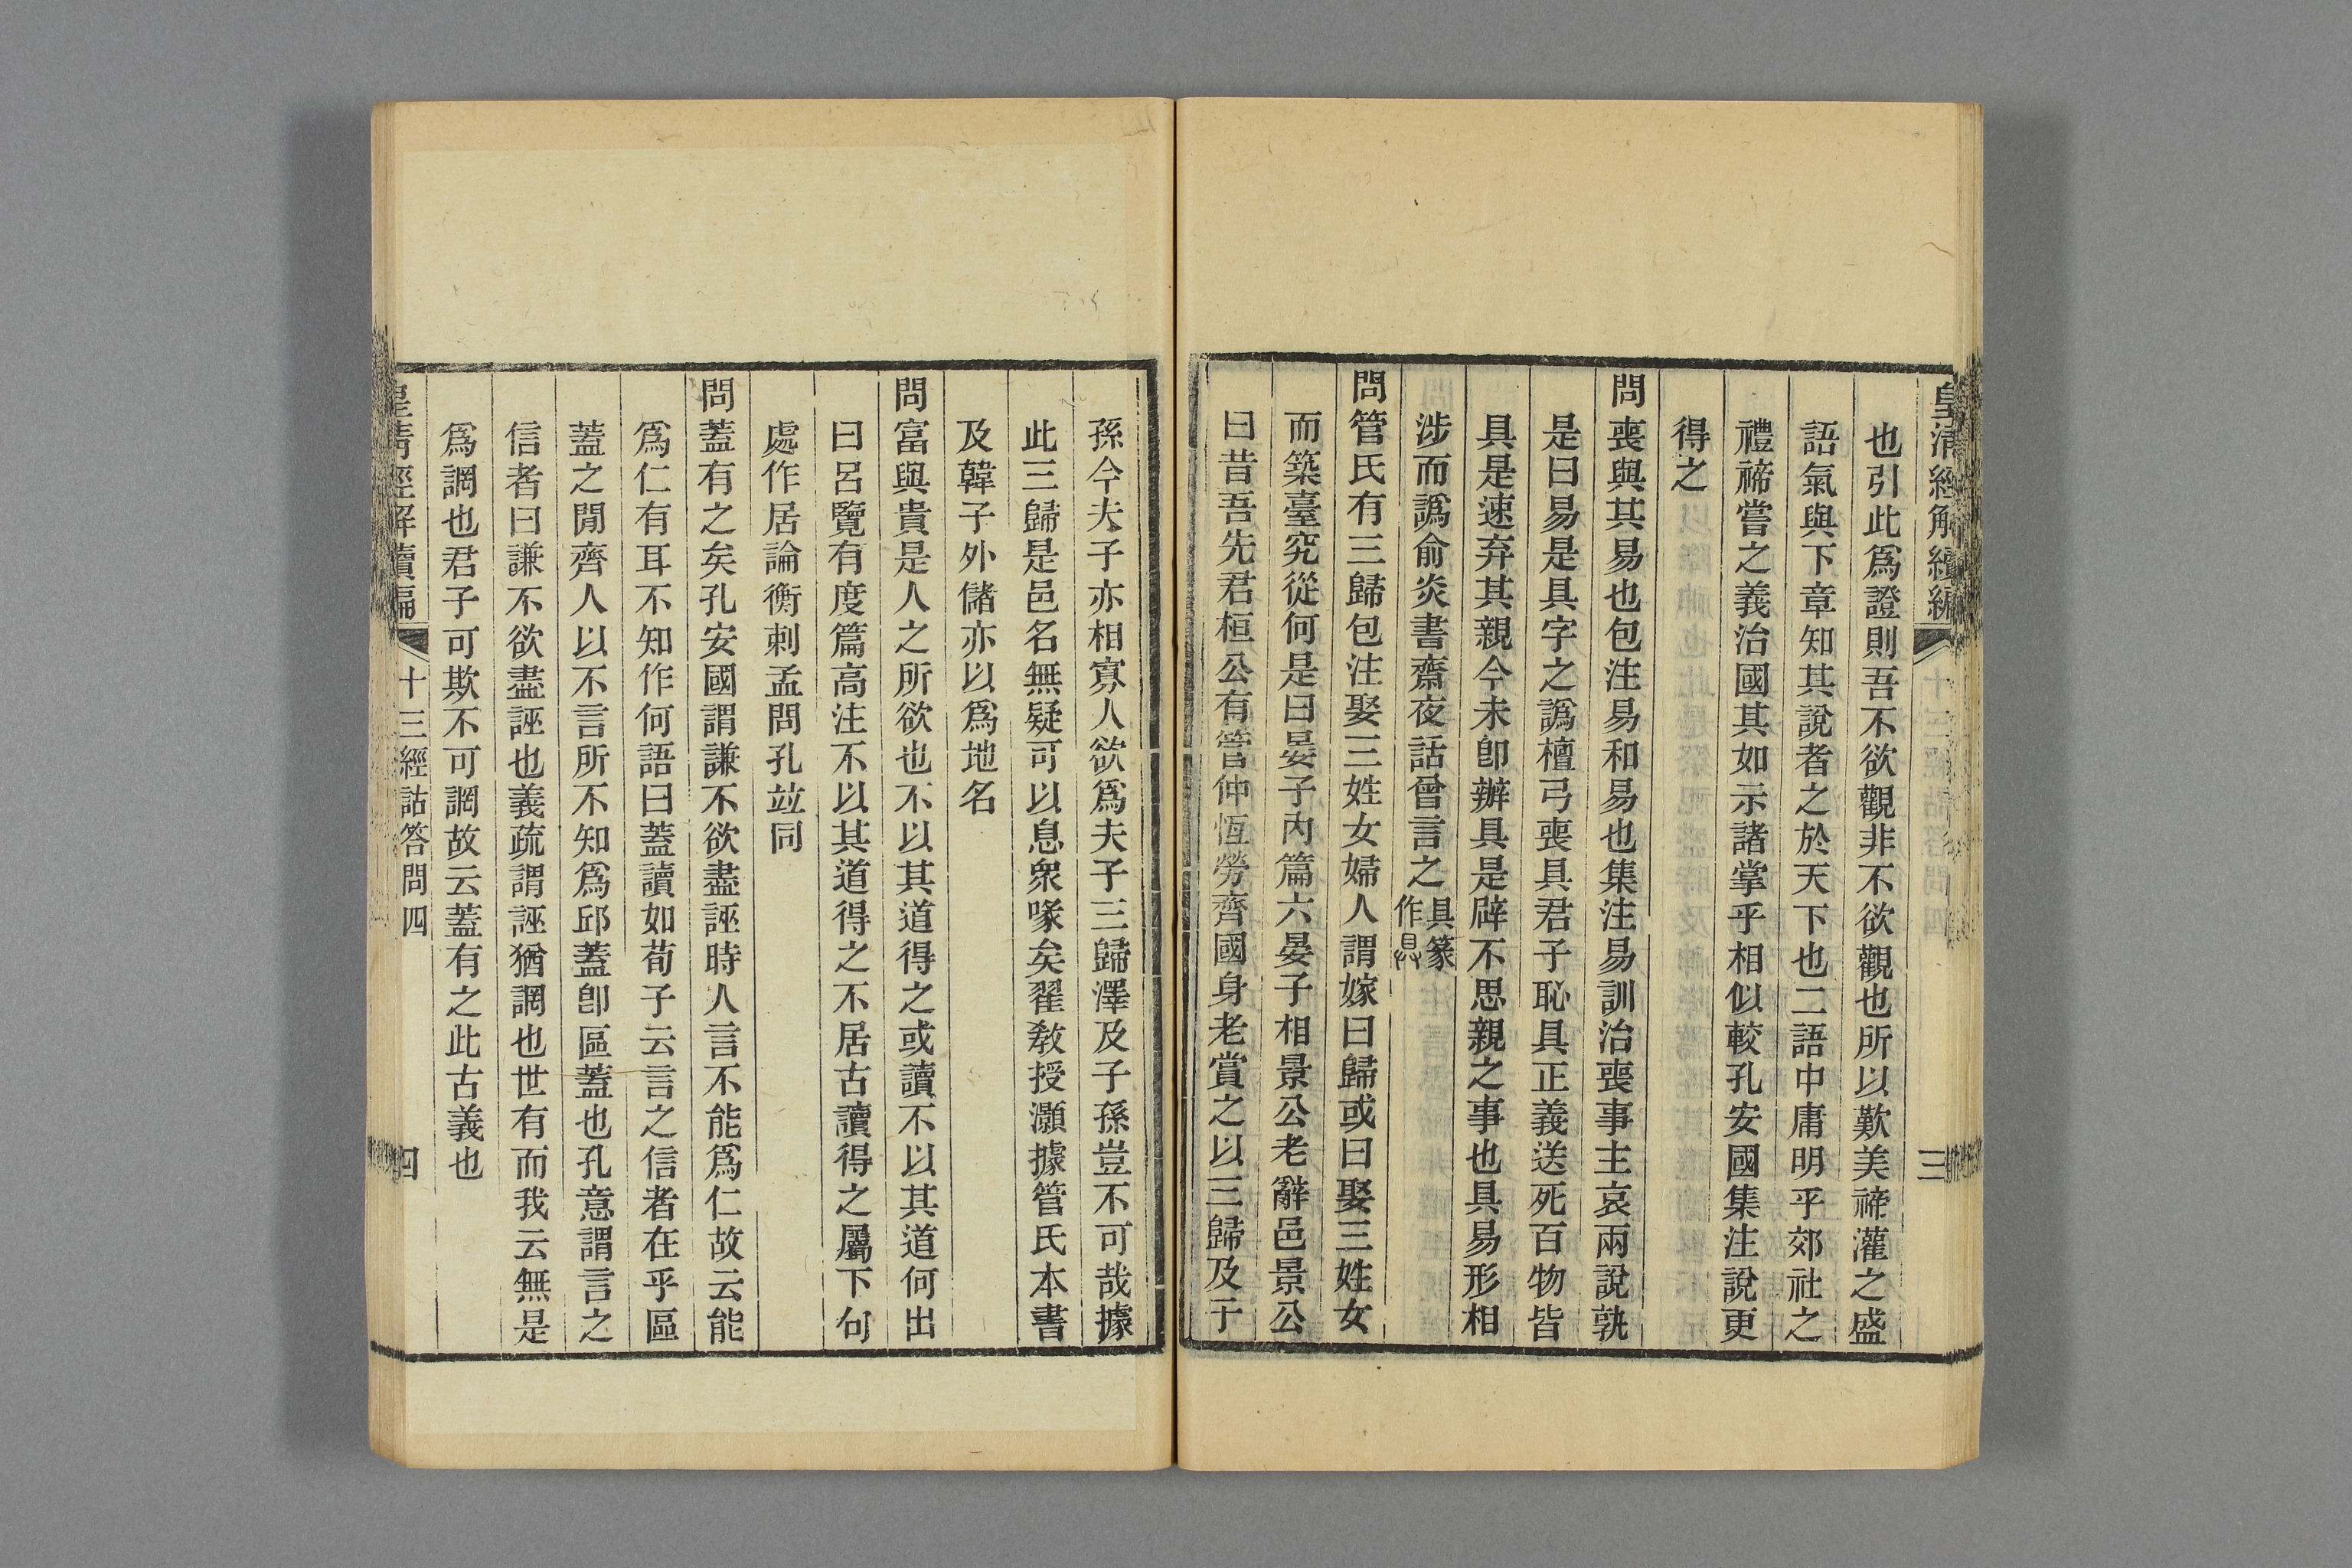 皇清經解續編
三
也引此爲證則吾不欲觀非不欲觀也所以歎美禘灌之盛
語氣與下章知其說者之於天下也二語中庸明乎郊社之
禮禘嘗之義治國其如示諸掌乎相似較孔安國集注說更
得之
問喪與其易也包注易和易也集注易訓治喪事主哀兩說孰
是曰易是具字之譌檀弓喪具君子恥具正義送死百物皆
具是速弃其親今未卽辦具是辟不思親之事也具易形相
涉而譌俞炎書齋夜話曾言之具篆作
問管氏有三歸包注娶三姓女婦人謂嫁曰歸或曰娶三姓女
而築臺究從何是曰晏子內篇六晏子相景公老辭邑景公
曰昔吾先君桓公有管仲恆勞齊國身老賞之以三歸及于
孫今夫子亦相寡人欲爲夫子三歸澤及子孫豈不可哉據
此三歸是邑名無疑可以息衆喙矣翟敎授灝據管氏本書
及韓子外儲亦以爲地名
問富與貴是人之所欲也不以其道得之或讀不以其道何出
曰呂覽有度篇高注不以其道得之不居古讀得之屬下句
處作居論衡刺孟問孔竝同
問蓋有之矣孔安國謂謙不欲盡誣時人言不能爲仁故云能
爲仁有耳不知作何語曰蓋讀如荀子云言之信者在乎區
蓋之閒齊人以不言所不知爲邱蓋卽區蓋也孔意謂言之
信者曰謙不欲盡誣也義疏謂誣猶誷也世有而我云無是
爲誷也君子可欺不可誷故云蓋有之此古義也
皇清經解續編
十三經詁答問四
四